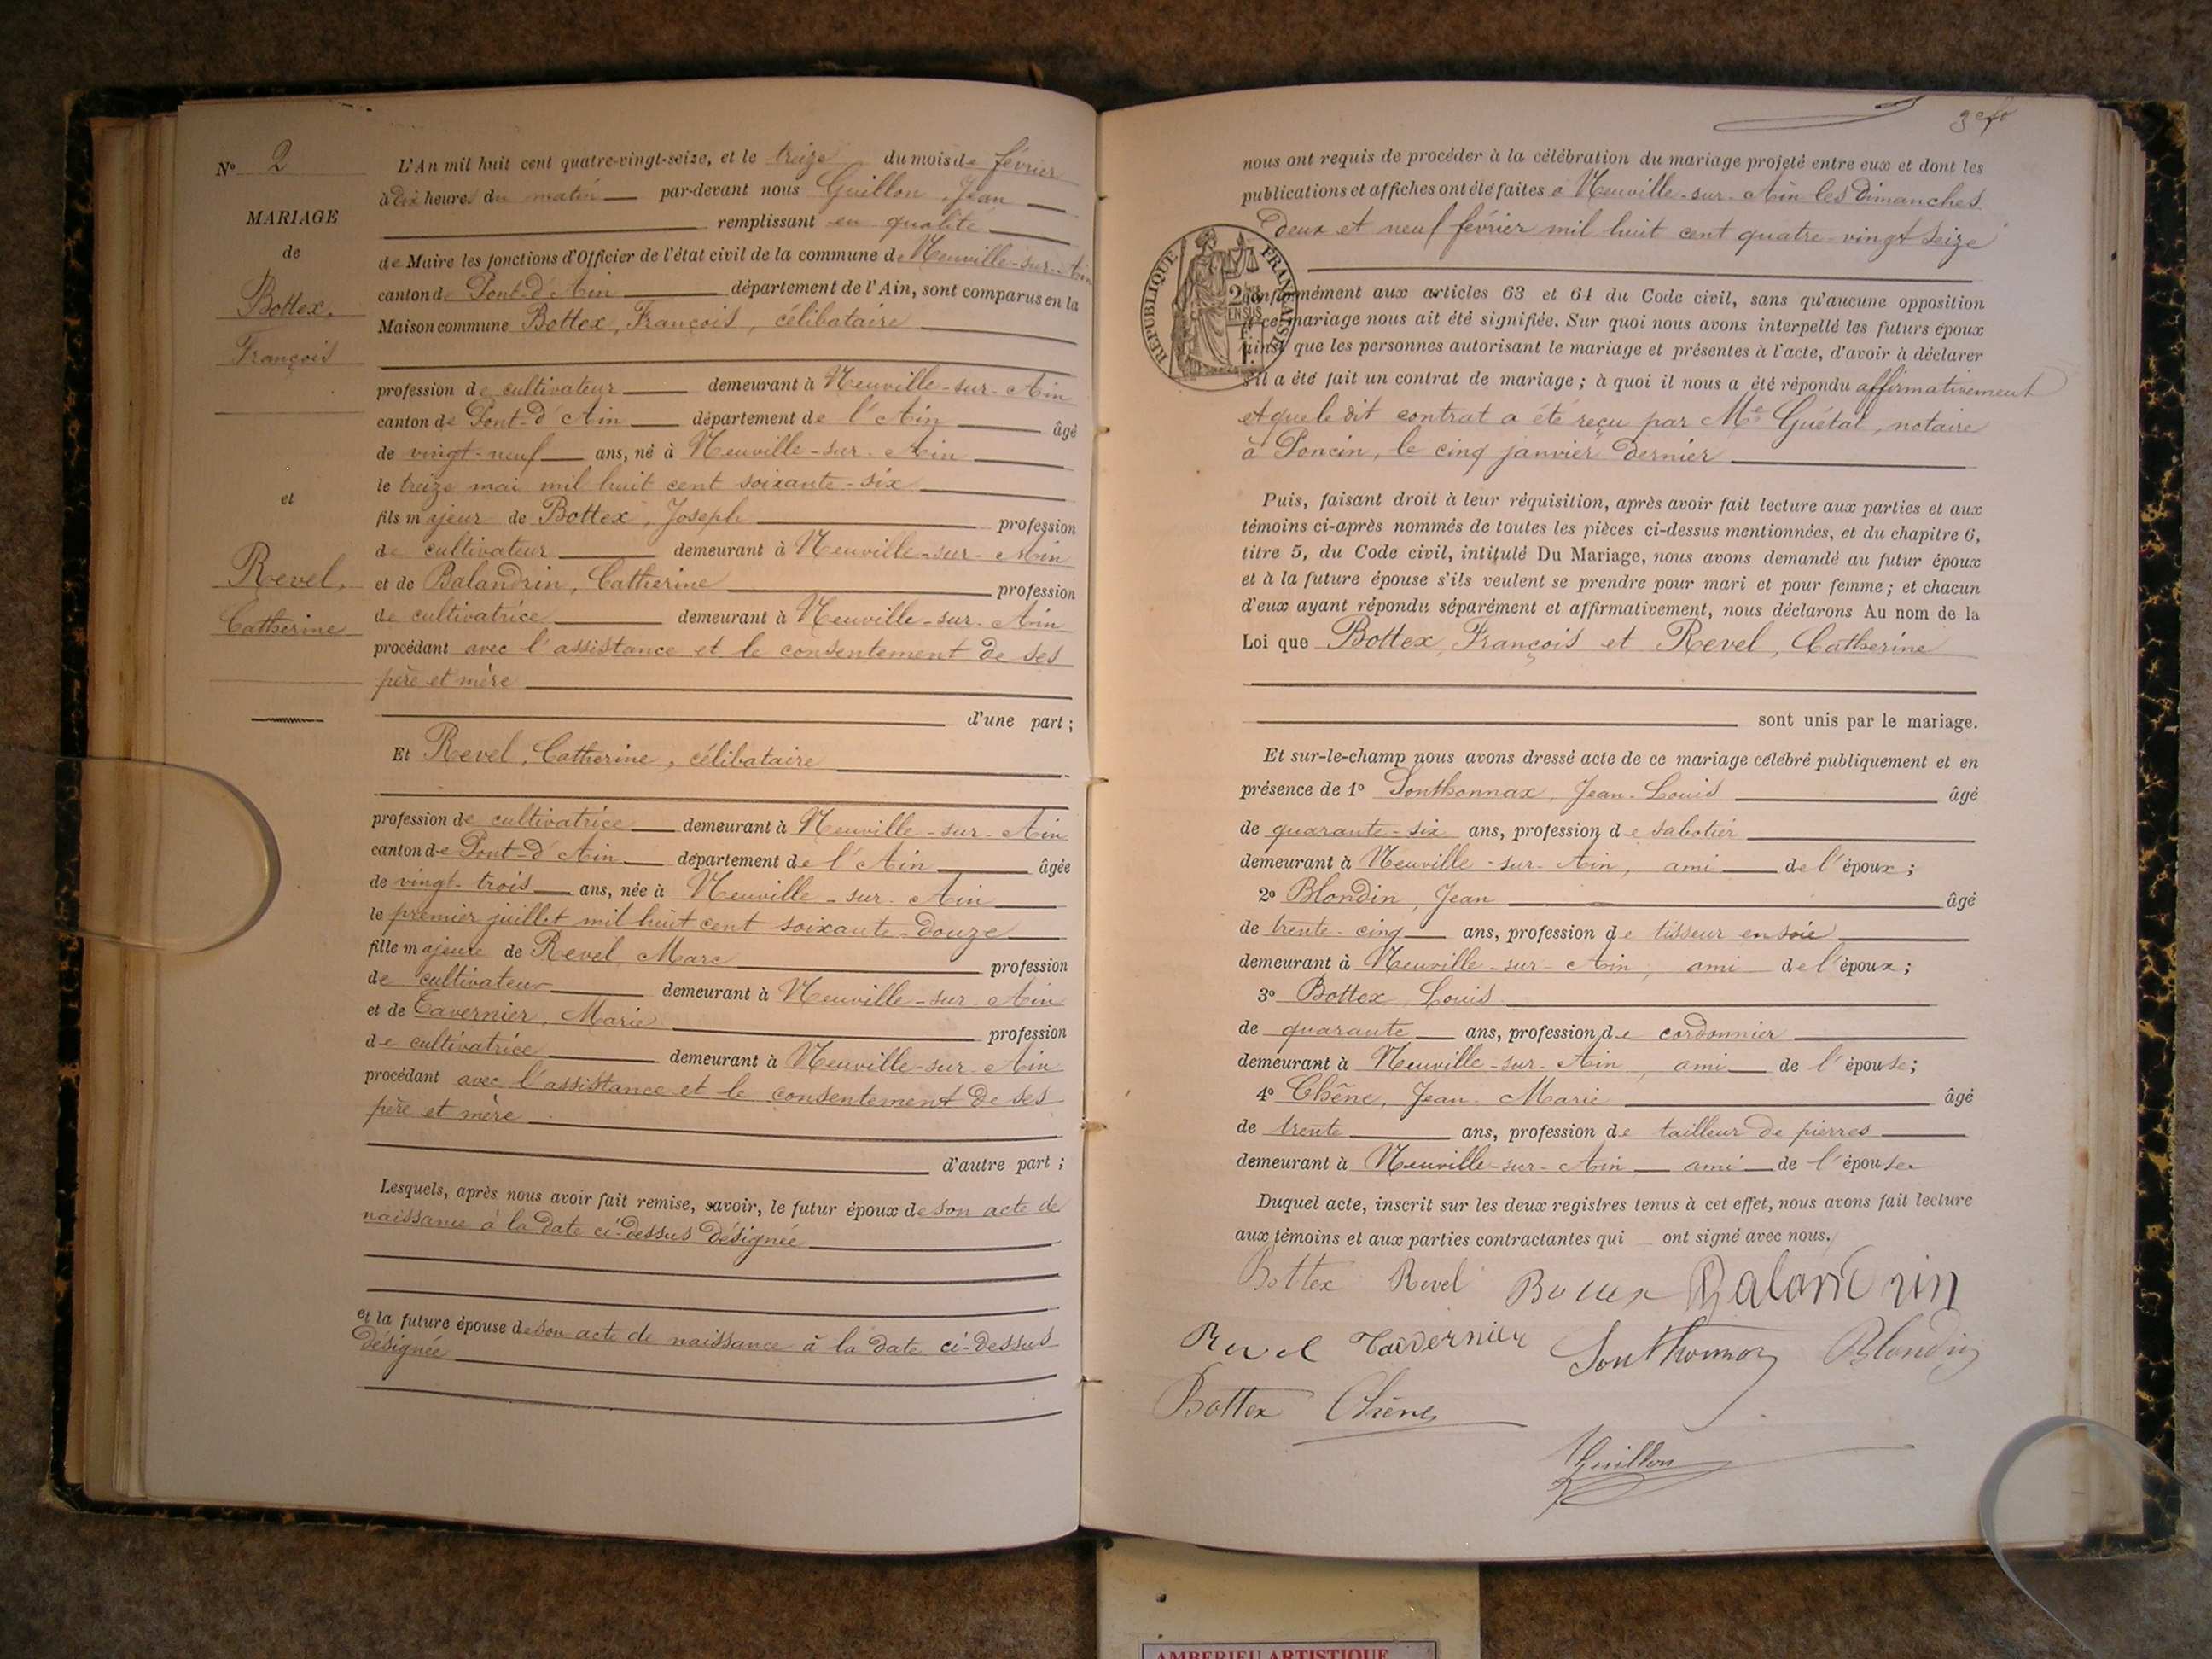 N° 2
MARIAGE
de
Bottex,
François
et
Revel,
Catherine
L'An mil huit cent quatre-vingt-seize, et le treize du mois de février
à dix heures du matin par-devant nous Guillon, Jean
remplissant en qualité
de Maire les fonctions d'Officier de l'état civil de la commune de Neuville-sur-Ain
canton de Pont-d'Ain département de l'Ain, sont comparus en la
Maison commune Bottex, François, célibataire
profession de cultivateur demeurant à Neuville-sur-Ain
canton de Pont-d'Ain département de l'Ain âgé
de vingt-neuf ans, né à Neuville-sur-Ain
le treize mai mil huit cent soixante-six
fils majeur de Bottex, Joseph profession
de cultivateur demeurant à Neuville-sur-Ain
et de Balandrin, Catherine profession
de cultivatrice demeurant à Neuville-sur-Ain
procédant avec l'assistance et le consentement de ses
père et mère
d'une part;
Et Revel, Catherine, célibataire
profession de cultivatrice demeurant à Neuville-sur-Ain
canton de Pont-d'Ain département de l'Ain âgée
de vingt-trois ans, née à Neuville-sur-Ain
le premier juillet mil huit cent soixante-douze
fille majeure de Revel, Marc profession
de cultivateur demeurant à Neuville-sur-Ain
et de Tavernier, Marie profession
de cultivatrice demeurant à Neuville-sur-Ain
procédant avec l'assistance et le consentement de ses
père et mère
d'autre part;
Lesquels, après nous avoir fait remise, savoir, le futur époux de son acte de
naissance à la date ci-dessus désignée
et la future épouse de son acte de naissance à la date ci-dessus
désignée
3e fo
nous ont requis de procéder à la célébration du mariage projeté entre eux et dont les
publications et affiches ont été faites à Neuville-sur-Ain les Dimanches
deux et neuf février mil huit cent quatre-vingt seize
REPUBLIQUE FRANÇAISE
2/10 EN SUS
conformément aux articles 63 et 64 du Code civil, sans qu'aucune opposition
à ce mariage nous ait été signifiée. Sur quoi nous avons interpellé les futurs époux
ainsi que les personnes autorisant le mariage et présentes à l'acte, d'avoir à déclarer
s'il a été fait un contrat de mariage; à quoi il nous a été répondu affirmativement
et que le dit contrat a été reçu par Me Guétat, notaire
à Poncin, le cinq janvier dernier
Puis, faisant droit à leur réquisition, après avoir fait lecture aux parties et aux
témoins ci-après nommés de toutes les pièces ci-dessus mentionnées, et du chapitre 6,
titre 5, du Code civil, intitulé Du Mariage, nous avons demandé au futur époux
et à la future épouse s'ils veulent se prendre pour mari et pour femme; et chacun
d'eux ayant répondu séparément et affirmativement, nous déclarons Au nom de la
Loi que Bottex, François et Revel, Catherine
sont unis par le mariage.
Et sur-le-champ nous avons dressé acte de ce mariage célébré publiquement et en
présence de 1° Sonthonnax, Jean-Louis âgé
de quarante-six ans, profession de sabotier
demeurant à Neuville-sur-Ain, ami de l'époux;
2° Blondin, Jean âgé
de trente-cinq ans, profession de tisseur en soie
demeurant à Neuville-sur-Ain, ami de l'époux;
3° Bottex Louis
de quarante ans, profession de cordonnier
demeurant à Neuville-sur-Ain, ami de l'épouse;
4° Chêne, Jean-Marie âgé
de trente ans, profession de tailleur de pierres
demeurant à Neuville-sur-Ain ami de l'épouse
Duquel acte, inscrit sur les deux registres tenus à cet effet, nous avons fait lecture
aux témoins et aux parties contractantes qui ont signé avec nous.
Bottex Revel Bottex Balandrin
Revel Tavernier Sonthonnax Blondin
Bottex Chêne
Guillon
AMBERIEU ARTISTIQUE